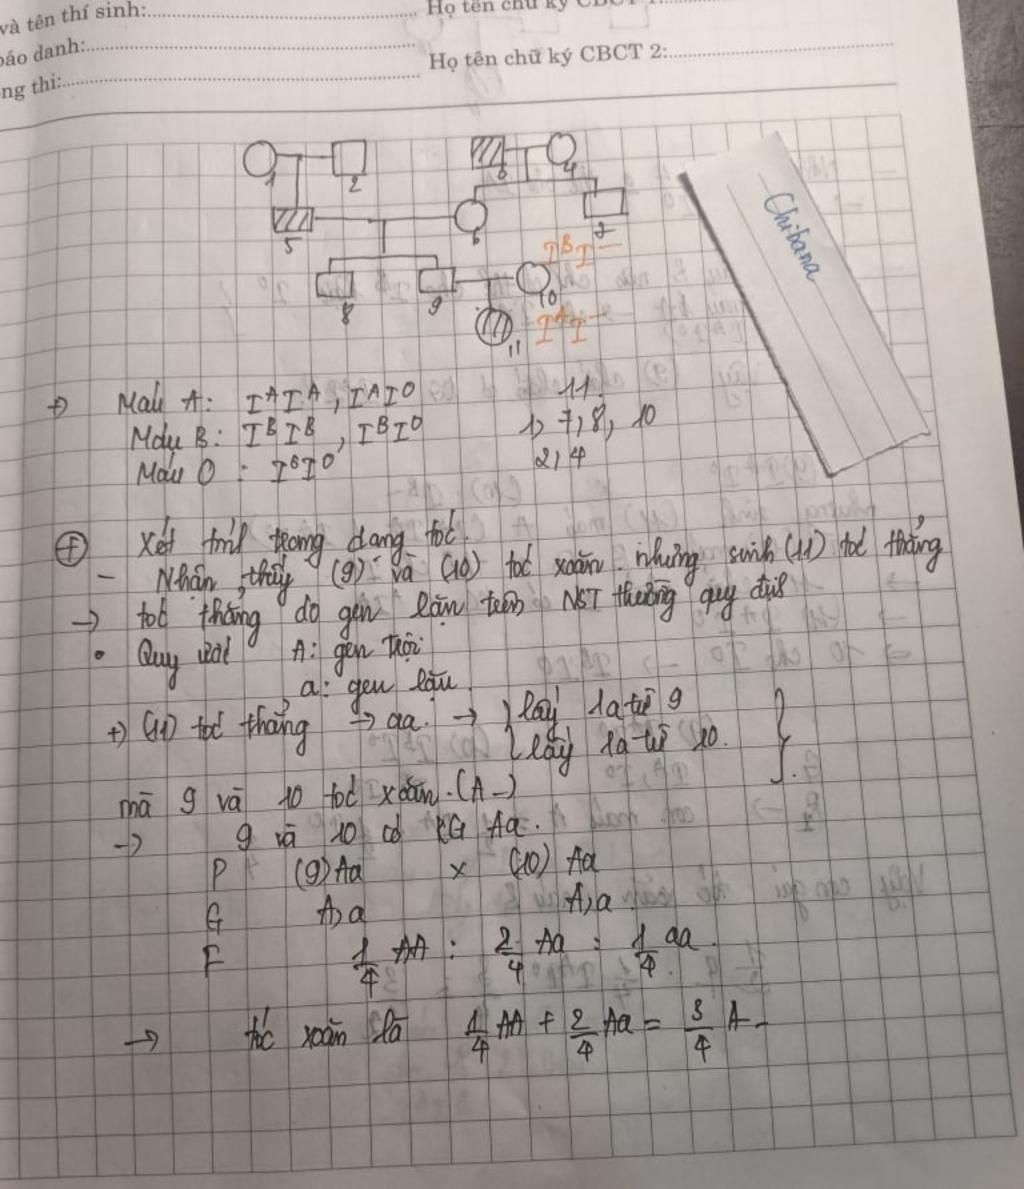 và tên thí sinh:
Họ tên chữ ký CBCT 1:
báo danh:
Họ tên chữ ký CBCT 2:
ng thi:
Chibana
1 2 4
5 6 7
I^B I^-
8 9 10
11 I^A I^-
+) Máu A: I^A I^A, I^A I^O 11.
Máu B: I^B I^B, I^B I^O 1, 7, 8, 10
Máu O: I^O I^O 2, 4
+ Xét tính trạng dạng tóc.
- Nhận thấy (9) và (10) tóc xoăn. nhưng sinh (11) tóc thẳng
→ tóc thẳng do gen lặn trên NST thường quy định
• Quy ước A: gen trội
a: gen lặn
+) (11) tóc thẳng → aa. → lấy 1a từ 9
lấy 1a từ 10.
mà 9 và 10 tóc xoăn. (A-)
→ 9 và 10 có KG Aa.
P (9) Aa x (10) Aa
G A, a A, a
F 1/4 AA : 2/4 Aa : 1/4 aa.
→ tóc xoăn là 1/4 AA + 2/4 Aa = 3/4 A-